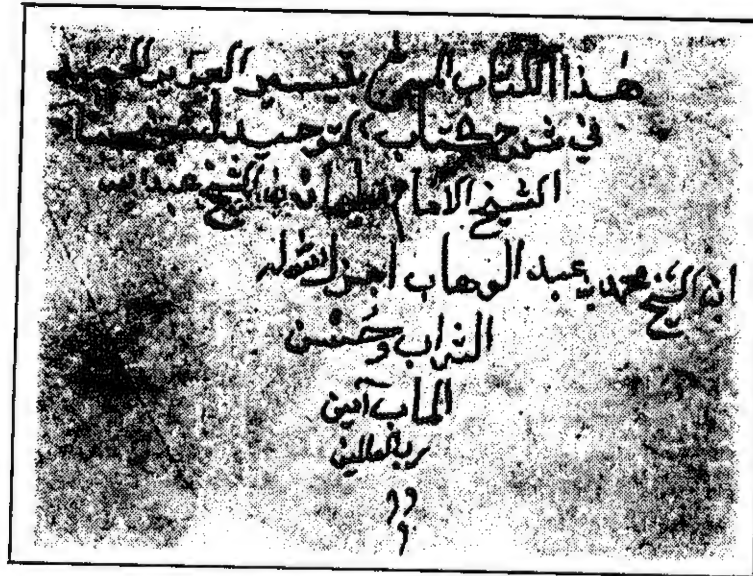 هذا الكتاب المسمى بتيسير العزيز الحميد
في شرح كتاب التوحيد تصنيف
الشيخ الامام سليمان بن الشيخ عبد الله
ابن الشيخ محمد بن عبد الوهاب اجزل الله له
الثواب وحسن
الماب آمين
رب العالمين